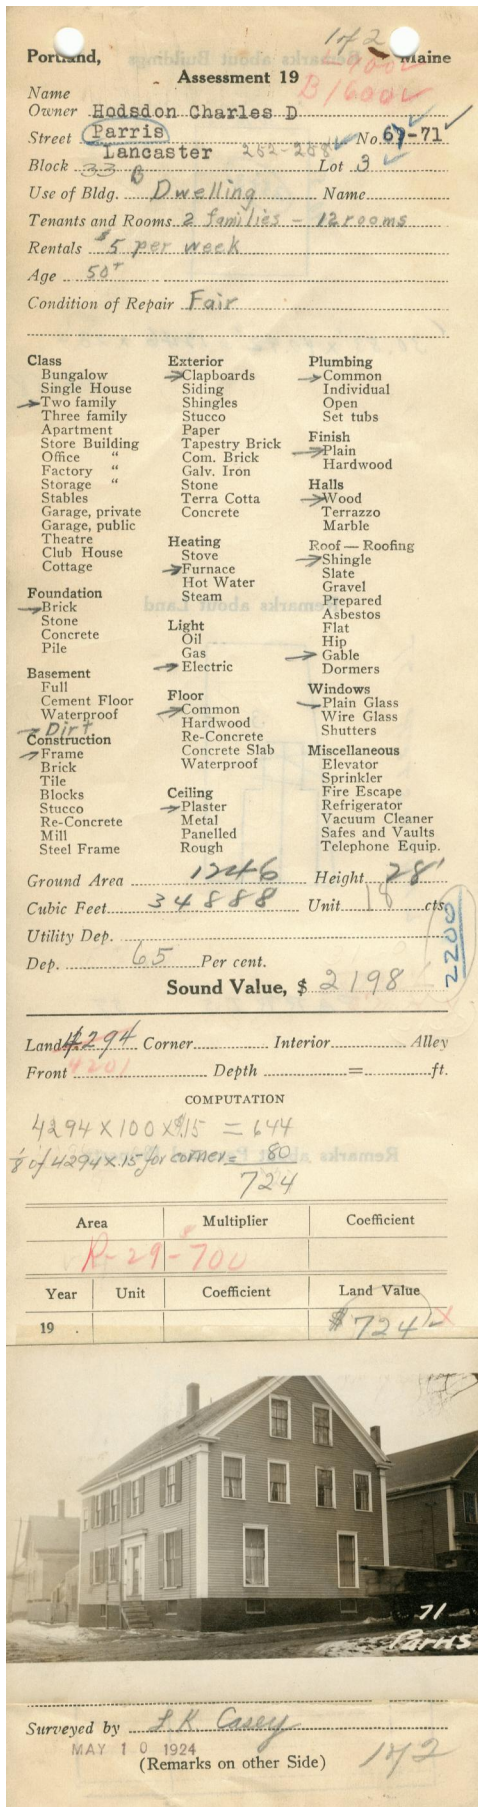 142
Portland, Maine
Assessment 19
B 1600
Name
Owner Hodsdon Charles D
Street Parris No. 67-71
Lancaster 252-258
Block 33 B Lot 3
Use of Bldg. Dwelling Name
Tenants and Rooms 2 families - 12 rooms
Rentals $5 per week
Age 50+
Condition of Repair Fair
Class
Bungalow
Single House
Two family
Three family
Apartment
Store Building
Office "
Factory "
Storage "
Stables
Garage, private
Garage, public
Theatre
Club House
Cottage
Foundation
Brick
Stone
Concrete
Pile
Basement
Full
Cement Floor
Waterproof
Dirt
Construction
Frame
Brick
Tile
Blocks
Stucco
Re-Concrete
Mill
Steel Frame
Exterior
Clapboards
Siding
Shingles
Stucco
Paper
Tapestry Brick
Com. Brick
Galv. Iron
Stone
Terra Cotta
Concrete
Heating
Stove
Furnace
Hot Water
Steam
Light
Oil
Gas
Electric
Floor
Common
Hardwood
Re-Concrete
Concrete Slab
Waterproof
Ceiling
Plaster
Metal
Panelled
Rough
Plumbing
Common
Individual
Open
Set tubs
Finish
Plain
Hardwood
Halls
Wood
Terrazzo
Marble
Roof — Roofing
Shingle
Slate
Gravel
Prepared
Asbestos
Flat
Hip
Gable
Dormers
Windows
Plain Glass
Wire Glass
Shutters
Miscellaneous
Elevator
Sprinkler
Fire Escape
Refrigerator
Vacuum Cleaner
Safes and Vaults
Telephone Equip.
Ground Area 1246 Height 28'
Cubic Feet 34888 Unit 18 cts.
2200
Utility Dep.
Dep. 65 Per cent.
Sound Value, $ 2198
Land 4294 Corner Interior Alley
Front 4201 Depth = ft.
COMPUTATION
4294 X 100 X $.15 = 644
1/8 of 4294 X .15 for corner = 80
724
Area Multiplier Coefficient
R-29-700
Year Unit Coefficient Land Value
19 $724
71
Parris
Surveyed by L K Casey
MAY 10 1924
(Remarks on other Side) 142